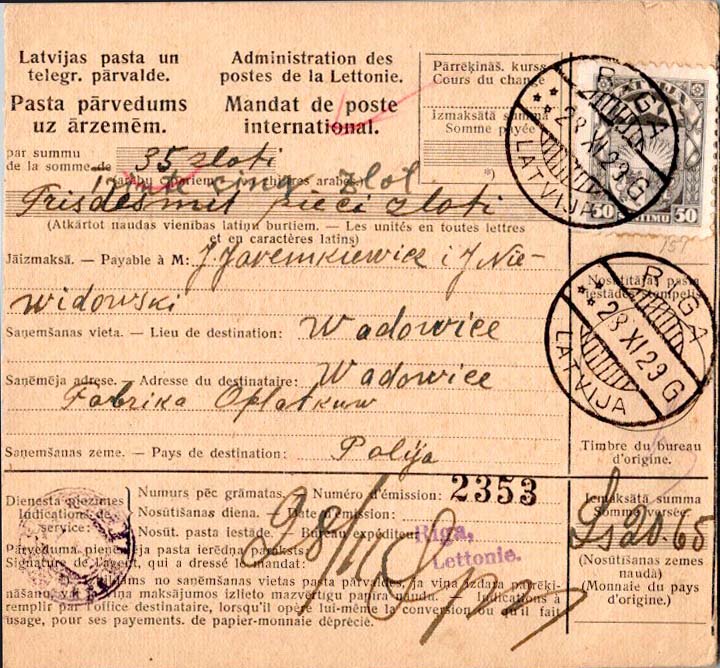 Latvijas pasta un
telegr. pārvalde.
Pasta pārvedums
uz ārzemēm.
Administration des
postes de la Lettonie.
Mandat de poste
international.
Pārrēķināš. kurss
Cours du change
Izmaksātā summa
Somme payée
*)
RIGA
28 XI 29 G
LATVIJA
LATVIJA
50 50
157
par summu
de la somme de 35 zloti
(arabu cipariem — en chiffres arabes)
cinq zlot
Trisdesmit pieci zloti
(Atkārtot naudas vienības latiņu burtiem. — Les unités en toutes lettres
et en caractères latins)
Jāizmaksā. — Payable à M: J. Jaremkiewicz i J. Nie-
widowski
Saņemšanas vieta. — Lieu de destination: Wadowice
Saņēmēja adrese. — Adresse du destinataire: Wadowice
Fabrika Oplatkuw
Saņemšanas zeme. — Pays de destination: Polija
Nosūtītājas pasta
iestādes stempelis
RIGA
28 XI 29 G
LATVIJA
Timbre du bureau
d'origine.
Dienesta piezīmes
Indications de
service:
Numurs pēc grāmatas. — Numéro d'émission: 2353
Nosūtīšanas diena. — Date d'émission:
Nosūt. pasta iestāde. — Bureau expéditeur
Riga,
Lettonie.
28/11
Iemaksātā summa
Somme versée
Ls 20.65
(Nosūtīšanas zemes
naudā)
(Monnaie du pays
d'origine.)
Pārveduma pieņēmēja pasta ierēdņa paraksts:
Signature de l'agent, qui a dressé le mandat:
no saņemšanas vietas pasta pārvaldes, ja viņa izdara pārrēķi-
nāšanu, vai viņa maksājumos izlieto mazvērtīgu papīra naudu. — Indications à
remplir par l'office destinataire, lorsqu'il opère lui-même la conversion ou qu'il fait
usage, pour ses payements, de papier-monnaie déprécié.